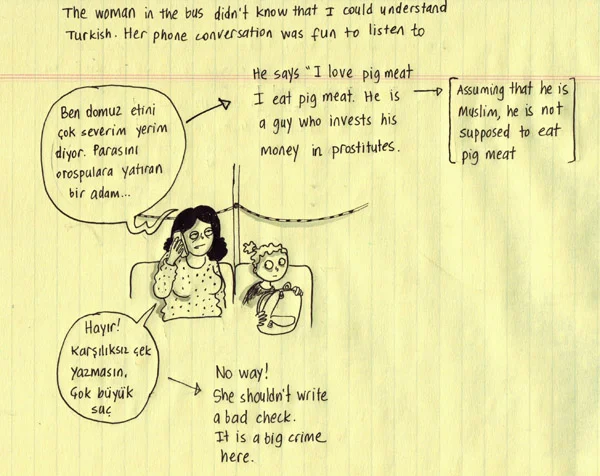 The woman in the bus didn't know that I could understand
Turkish. Her phone conversation was fun to listen to
Ben domuz etini
çok severim yerim
diyor. Parasını
orospulara yatıran
bir adam...
He says "I love pig meat
I eat pig meat. He is
a guy who invests his
money in prostitutes.
Assuming that he is
Muslim, he is not
supposed to eat
pig meat
Hayır!
Karşılıksız çek
yazmasın.
Çok büyük
suç
No way!
She shouldn't write
a bad check.
It is a big crime
here.